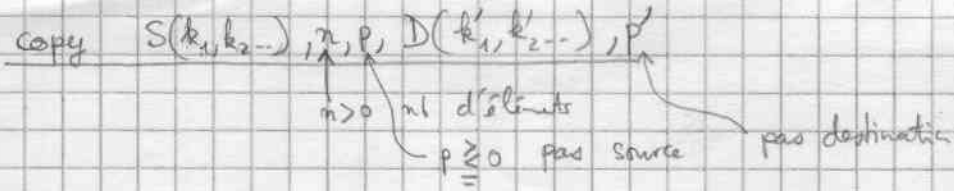 copy S(k₁,k₂...), n, p, D(k'₁,k'₂...), p'
n>0 nb d'éléments
p ≧ 0 pas source
pas destination